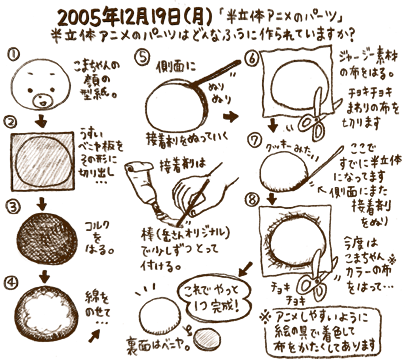 2005年12月19日(月)「半立体アニメのパーツ」
半立体アニメのパーツはどんなふうに作られていますか?
①
こまちゃんの
顔の
型紙。
②
うすい
ベニヤ板を
その形に
切り出し
…
③
コルク
を
はる。
④
綿を
のせて
…
⑤
側面に
ぬり
ぬり
接着剤をぬっていく
接着剤は
棒(岳さんオリジナル)
で少しずつとって
付ける。
⑥
ジャージー素材
の布をはる。
チョキチョキ
まわりの布を
切ります
⑦
クッキーみたい
ここで
すでに半立体
になってます
側面にまた
接着剤
をぬり
⑧
チョキ
チョキ
今度は
こまちゃん
カラーの布
をはって…
これでやっと
1つ完成!
裏面はベニヤ。
※アニメしやすいように
絵の具で着色して
布をかたくしてあります
※